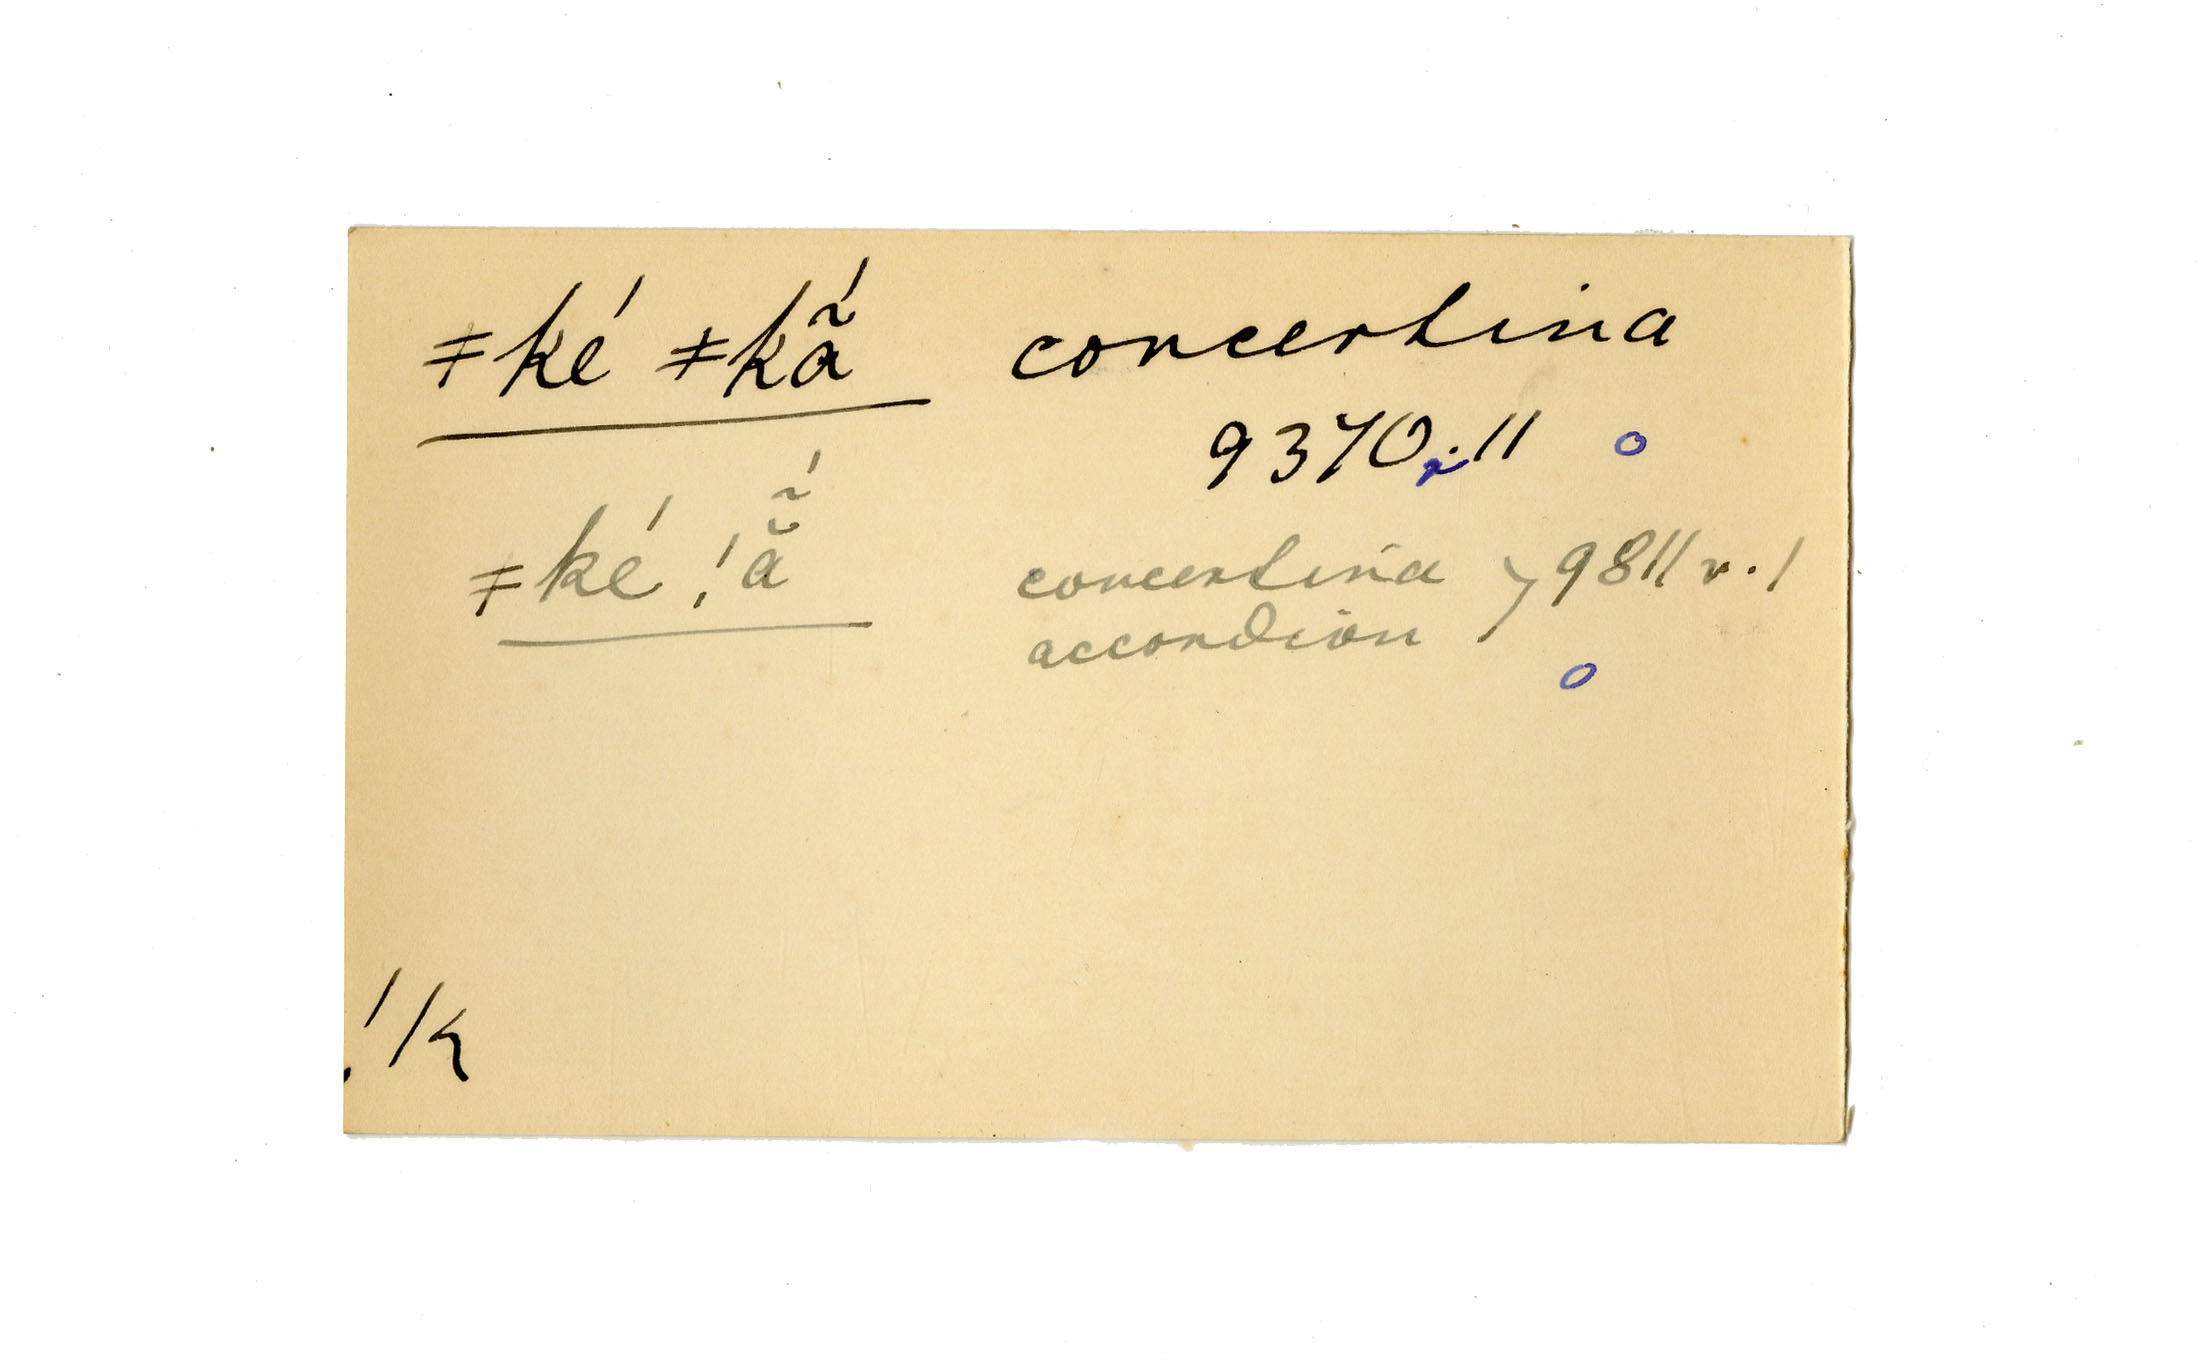 ǂké ǂkã́ concertina
9370r.11 o
ǂké !ã̆́ concertina } 9811 r.1
accordion
o
!k